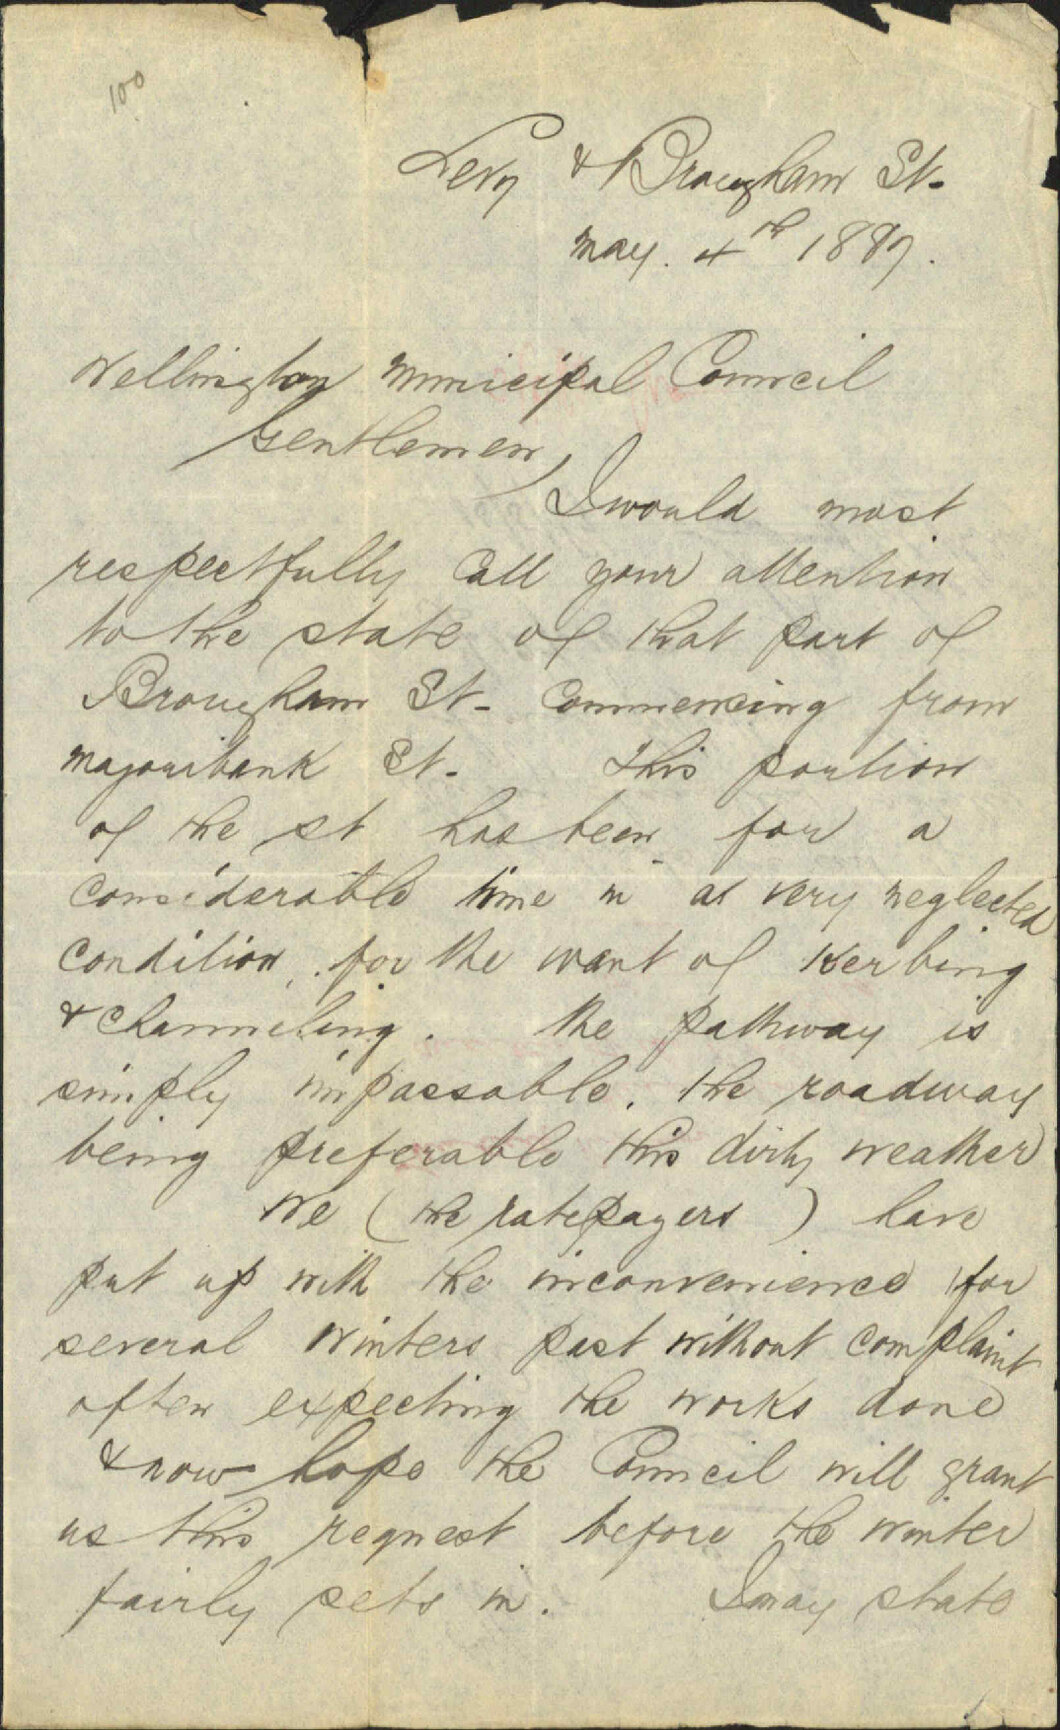 100
Levy & Brougham St.
May. 4th 1897.
Wellington Municipal Council
Gentlemen,
I would most
respectfully call your attention
to the state of that part of
Brougham St. Commencing from
Majouribank St. This portion
of the st has been for a
considerable time in a very neglected
condition, for the want of Kerbing
& channeling. The pathway is
simply impassable. the roadway
being preferable this dirty weather
We (the ratepayers) have
put up with the inconvenience for
several winters past without complaint
often expecting the works done
& now hope the Council will grant
us this request before the winter
fairly sets in. I may state